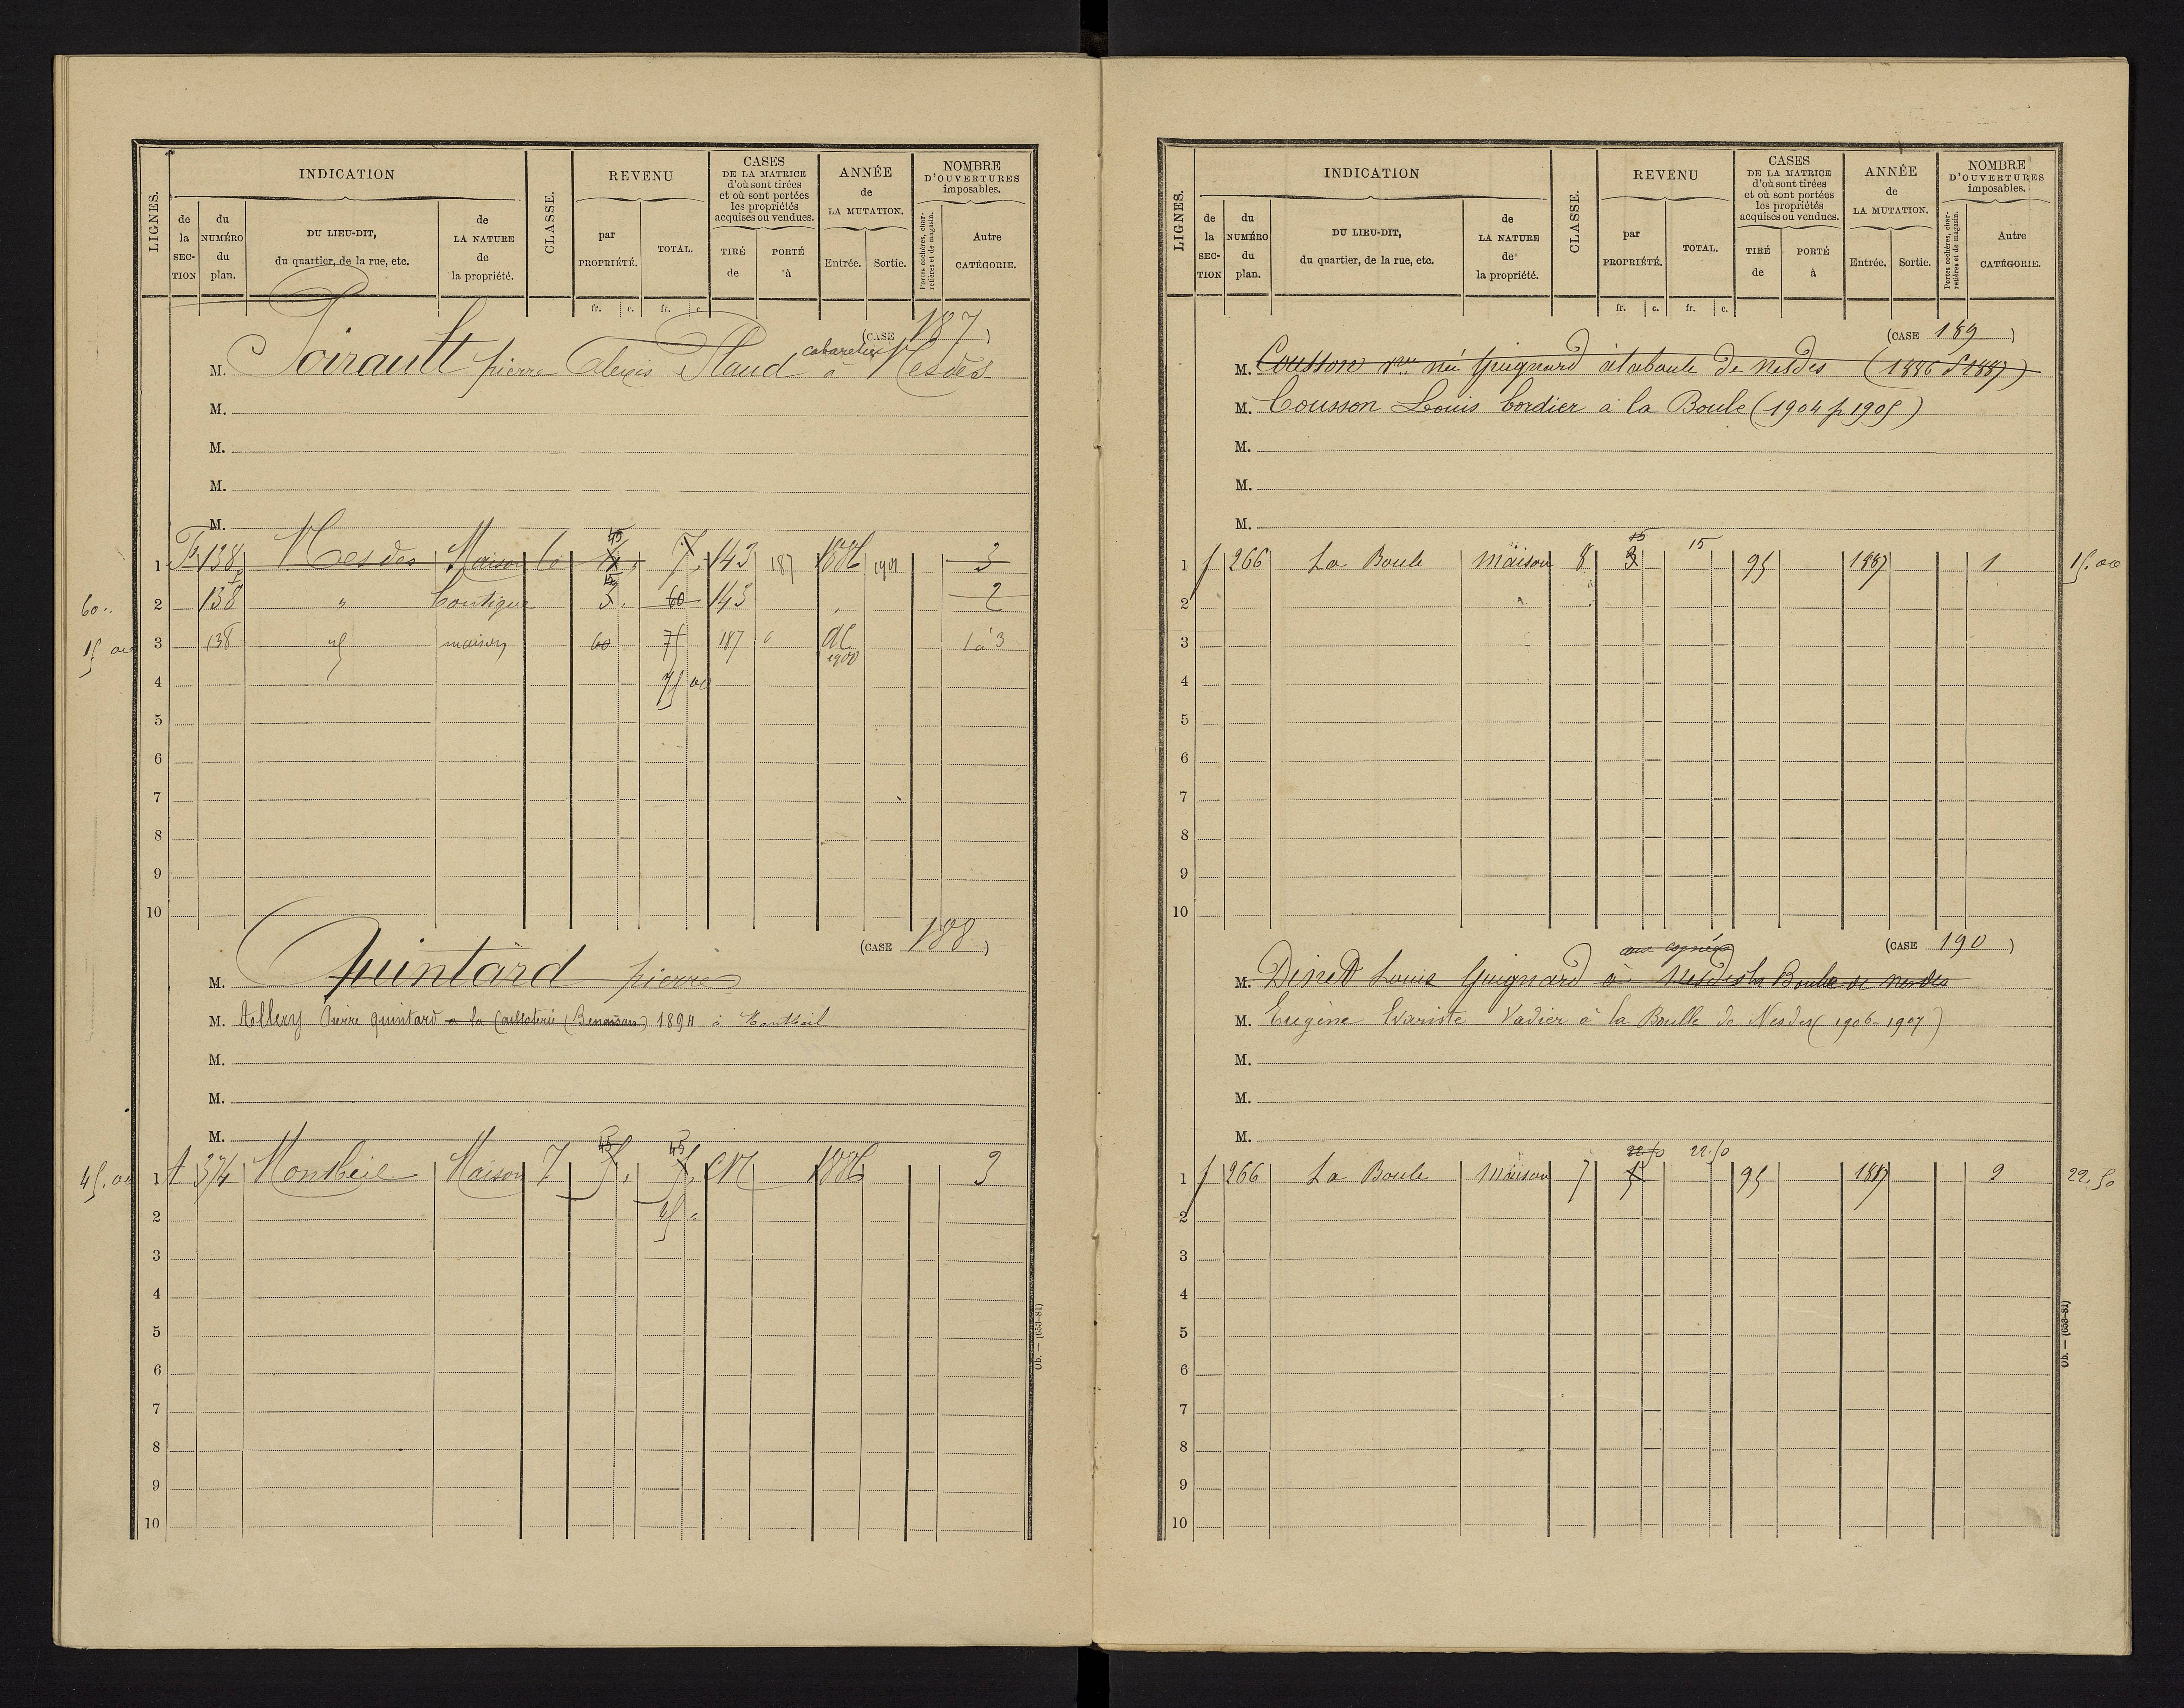 LIGNES. INDICATION CLASSE. REVENU CASES DE LA MATRICE d'où sont tirées et où sont portées les propriétés acquises ou vendues. ANNÉE de LA MUTATION. NOMBRE D'OUVERTURES imposables.
de la SECTION du NUMÉRO du plan. DU LIEU-DIT, du quartier, de la rue, etc. de LA NATURE de la propriété. par PROPRIÉTÉ. TOTAL. TIRÉ de PORTÉ à Entrée. Sortie. Portes cochères, charretières et de magasin. Autre CATÉGORIE.
fr. c. fr. c.
(CASE 187)
cabaretier
M. Poirault pierre Alexis Plaud à Nesdes
M.
M.
M.
M.
45
1 138 Nesdes Maison 6 7 143 187 1886 1901 3
15
60 " 2 138 " boutique 3 60 143 " 2
15 00 3 138 maison 60 75 187 1900 1 à 3
4 75 00
5
6
7
8
9
10
(CASE 188)
M. Quintard pierre
M. Allery Pierre quintard a la 1894 à Montbeil
M.
M.
M.
45 45
45.00 1 A 374 Montbeil Maison 7 5 5 CN 1886 3
2 45 "
3
4
5
6
7
8
9
10
Ob. — (653-81)
LIGNES. INDICATION CLASSE. REVENU CASES DE LA MATRICE d'où sont tirées et où sont portées les propriétés acquises ou vendues. ANNÉE de LA MUTATION. NOMBRE D'OUVERTURES imposables.
de la SECTION du NUMÉRO du plan. DU LIEU-DIT, du quartier, de la rue, etc. de LA NATURE de la propriété. par PROPRIÉTÉ. TOTAL. TIRÉ de PORTÉ à Entrée. Sortie. Portes cochères, charretières et de magasin. Autre CATÉGORIE.
fr. c. fr. c.
(CASE 189)
M. Cousson Vve née Guignard à la boule de Nesdes (1886 p 1887)
M. Cousson Louis Cordier à la Boule (1904 p 1905)
M.
M.
M.
15 15
1 f 266 La Boule Maison 8 3 95 1887 1 15.00
2
3
4
5
6
7
8
9
10
(CASE 190)
M. Dinet Louis Guignard à Nesdes la Boule de Nesdes
M. Eugène Evariste Vadier à la Boulle de Nesdes (1906-1907)
M.
M.
M.
22.50 22.50
1 f 266 La Boule Maison 7 5 95 1887 2 22.50
2
3
4
5
6
7
8
9
10
Ob. — (653-81)